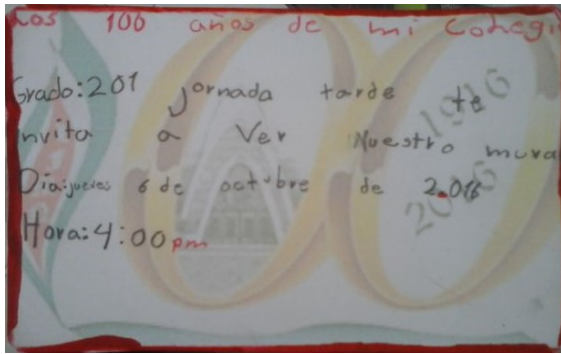 Los 100 años de mi Colegi
Grado:201 jornada tarde te
invita a Ver Nuestro mura
Día:jueves 6 de octubre de 2.016
Hora:4:00 pm
1916
2016